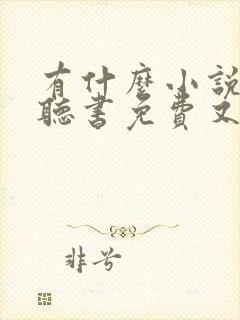 有什麼小說
聽書免費又
非兮